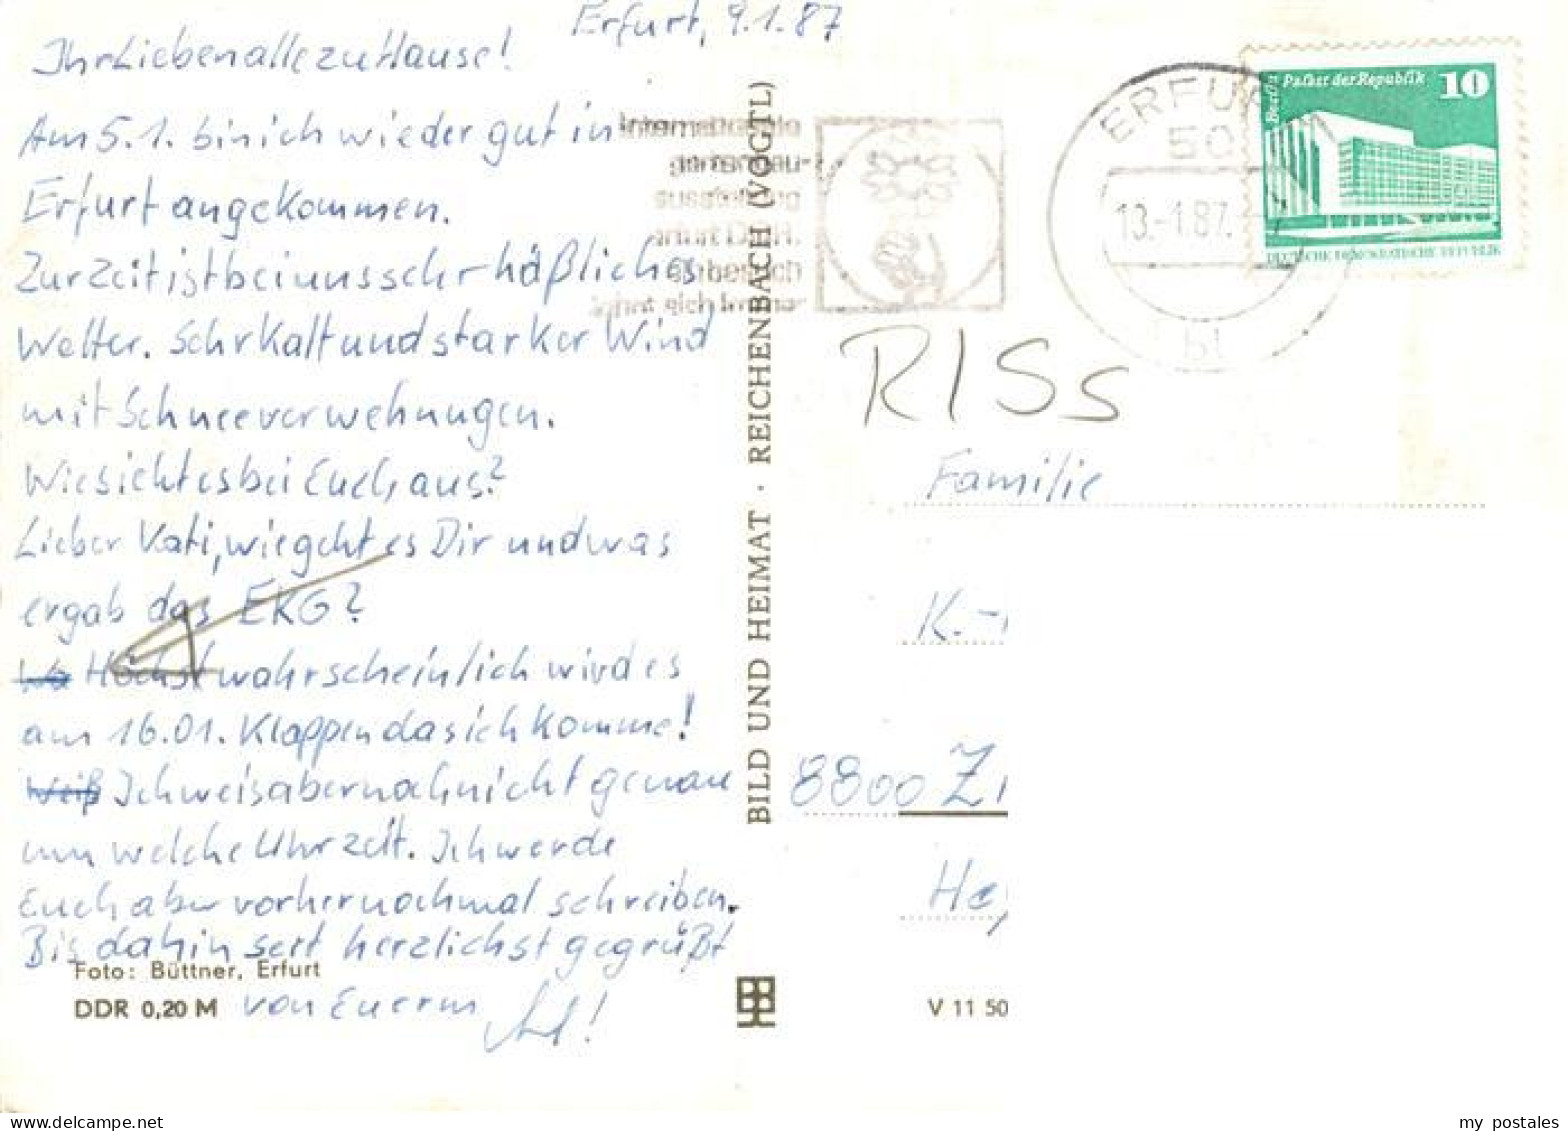 Erfurt, 9.1.87
Ihr Lieben alle zu Hause!
Am 5.1. bin ich wieder gut in
Erfurt angekommen.
Zur Zeit ist bei uns sehr häßliches
Wetter. Sehr kalt und starker Wind
mit Schneeverwehnungen.
Wie sieht es bei Euch aus?
Lieber Vati, wie geht es Dir und was
ergab das EKG?
Höchstwahrscheinlich wird es
am 16.01. Klappen das ich komme!
Weiß Ich weis aber noch nicht genau
um welche Uhrzeit. Ich werde
Euch aber vorher nochmal schreiben.
Bis dahin seit herzlichst gegrüßt
von Euerm
Foto: Büttner, Erfurt
DDR 0,20 M
BILD UND HEIMAT · REICHENBACH (VOGTL)
ERFURT
50
13.-1.87.
bt
Berlin Palast der Republik 10
DEUTSCHE DEMOKRATISCHE REPUBLIK
RISS
Familie
K.-
8800 Z
V 11 50
my postales